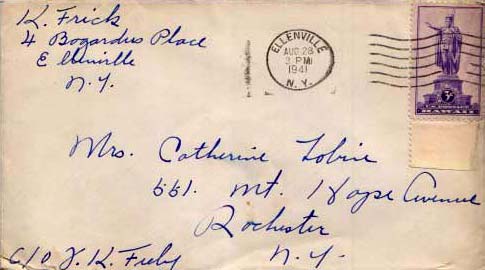 K. Frick
4 Bogardus Place
Ellenville
N.Y.
ELLENVILLE
AUG 28
3 PM
1941
N.Y.
3¢
HAWAII
Mrs. Catherine
551. Mt. Hope Avenue
Rochester
N.Y.
c/o J. K.